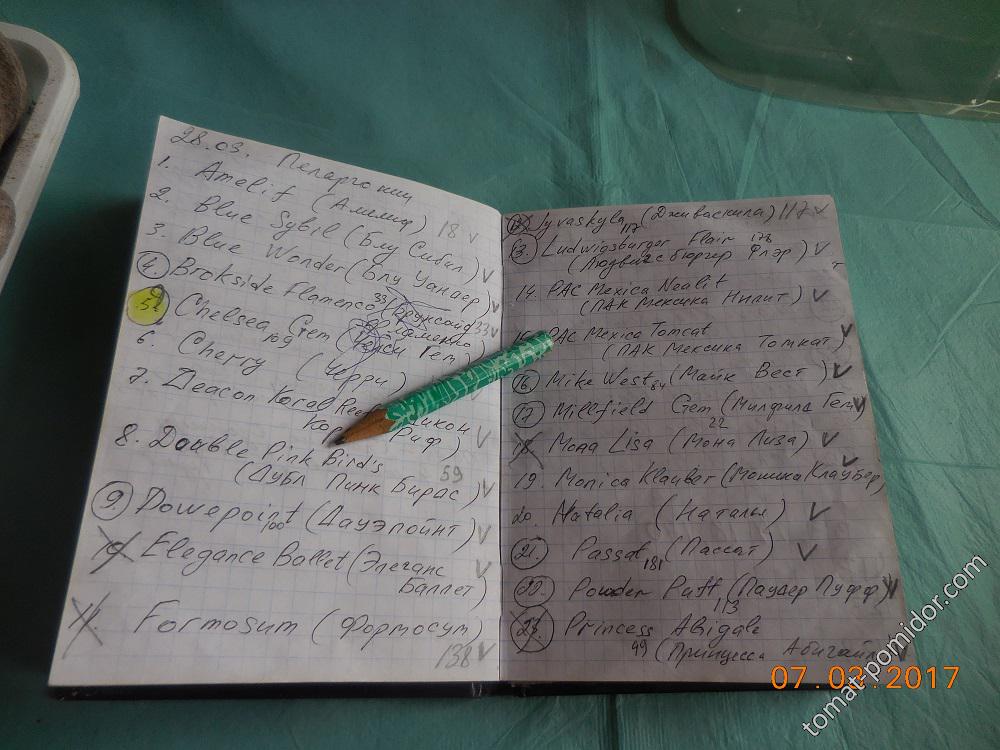 28.03. Пеларгонии
1. Amelif (Амелиф) 18 V
2. Blue Sybil (Блу Сибил) V
3. Blue Wonder (Блу Уандер) V
4. Brokside Flamenco 33 (Бруксайд 33 V
Фламенко
5. Chelsea Gem (Челси Гем)
6. Cherry (Черри)
7. Deacon Koral Reef
Риф) V
8. Double Pink Birds 59
(Дубл Пинк Бирдс) V
9. Dowepoint (Дауэпойнт) V
100
10. Elegance Ballet (Элеганс V
Баллет)
11. Formosum (Формосум)
138 V
Jyvaskyla 117 (Дживаскила) 117 V
13. Ludwigsburger Flair 178
(Людвигсбюргер Флэр) V
14. PAC Mexica Nealit
(ПАК Мексика Нилит) V
PAC Mexica Tomcat
(ПАК Мексика Томкат) V
16. Mike West 84 (Майк Вест) V
17. Millfield Gem (Милфилд Гем) V
22
18. Мона Lisa (Мона Лиза) V
19. Monica Klauber (Моника Клаубер) V
20. Natalia (Наталья) V
21. Passat 181 (Пассат) V
22. Powder Puff (Паудер Пуфф) V
113
23. Princess Abigale
49 (Принцесса Абигайль) V
07.03.2017
tomat-pomidor.com